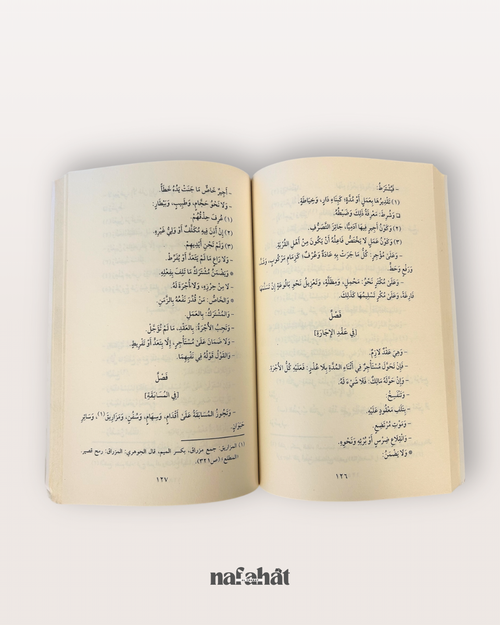 - فَيُشْتَرَطُ:
(١) تَقْدِيرُهَا بِعَمَلٍ أَوْ مُدَّةٍ؛ كَبِنَاءِ دَارٍ، وَخِيَاطَةٍ.
وَشُرِطَ: مَعْرِفَةُ ذَلِكَ وَضَبْطُهُ.
(٢) وَكَوْنُ أَجِيرٍ فِيهَا آدَمِيًّا، جَائِزَ التَّصَرُّفِ.
(٣) وَكَوْنُ عَمَلٍ لَا يَخْتَصُّ فَاعِلُهُ أَنْ يَكُونَ مِنْ أَهْلِ القُرْبَةِ.
- وَعَلَى مُؤْجِرٍ: كُلُّ مَا جَرَتْ بِهِ عَادَةٌ وَعُرْفٌ؛ كَزِمَامِ مَرْكُوبٍ،
وَرَفْعٍ وَحَطٍّ.
- وَعَلَى مُكْتَرٍ نَحْوُ: مَحْمِلٍ، وَمِظَلَّةٍ، وَتَعْزِيلُ نَحْوِ بَالُوعَةٍ إِنْ تَسَلَّمَهَا
فَارِغَةً، وَعَلَى مُكْرٍ تَسْلِيمُهَا كَذَلِكَ.
فَصْلٌ
[فِي عَقْدِ الإِجَارَةِ]
- وَهِيَ عَقْدٌ لَازِمٌ.
- فَإِنْ تَحَوَّلَ مُسْتَأْجِرٌ فِي أَثْنَاءِ المُدَّةِ بِلَا عُذْرٍ: فَعَلَيْهِ كُلُّ الأُجْرَةِ
- وَإِنْ حَوَّلَهُ مَالِكٌ: فَلَا شَيْءَ لَهُ.
- وَتَنْفَسِخُ:
- بِتَلَفِ مَعْقُودٍ عَلَيْهِ.
- وَمَوْتِ مُرْتَضِعٍ.
- وَانْقِلَاعِ ضِرْسٍ أَوْ بُرْئِهِ وَنَحْوِهِ.
* وَلَا يَضْمَنُ:
١٢٦
- أَجِيرٌ خَاصٌّ مَا جَنَتْ يَدُهُ خَطَأً.
- وَلَا نَحْوُ حَجَّامٍ، وَطَبِيبٍ، وَبَيْطَارٍ:
(١) عُرِفَ حِذْقُهُمْ.
(٢) إِنْ أَذِنَ فِيهِ مُكَلَّفٌ أَوْ وَلِيُّ غَيْرِهِ.
(٣) وَلَمْ تَجْنِ أَيْدِيهِمْ.
- وَلَا رَاعٍ مَا لَمْ يَتَعَدَّ أَوْ يُفَرِّطْ.
- وَيَضْمَنُ مُشْتَرَكٌ مَا تَلِفَ بِفِعْلِهِ.
- لَا مِنْ حِرْزِهِ، وَلَا أُجْرَةَ لَهُ.
- وَالخَاصُّ: مَنْ قُدِّرَ نَفْعُهُ بِالزَّمَنِ.
- وَالمُشْتَرَكُ: بِالعَمَلِ.
- وَتَجِبُ الأُجْرَةُ: بِالعَقْدِ، مَا لَمْ تُؤَجَّلْ.
- وَلَا ضَمَانَ عَلَى مُسْتَأْجِرٍ، إِلَّا بِتَعَدٍّ أَوْ تَفْرِيطٍ.
- وَالقَوْلُ قَوْلُهُ فِي نَفْيِهِمَا.
فَصْلٌ
[فِي المُسَابَقَةِ]
- وَتَجُوزُ المُسَابَقَةُ عَلَى أَقْدَامٍ، وَسِهَامٍ، وَسُفُنٍ، وَمَزَارِيقَ(١)، وَسَائِرِ
حَيَوَانٍ.
(١) المزاريق: جمع مزراق، بكسر الميم، قال الجوهري: المزراق: رمح قصير.
«المطلع» (ص٣٢٦).
١٢٧
nafahāt